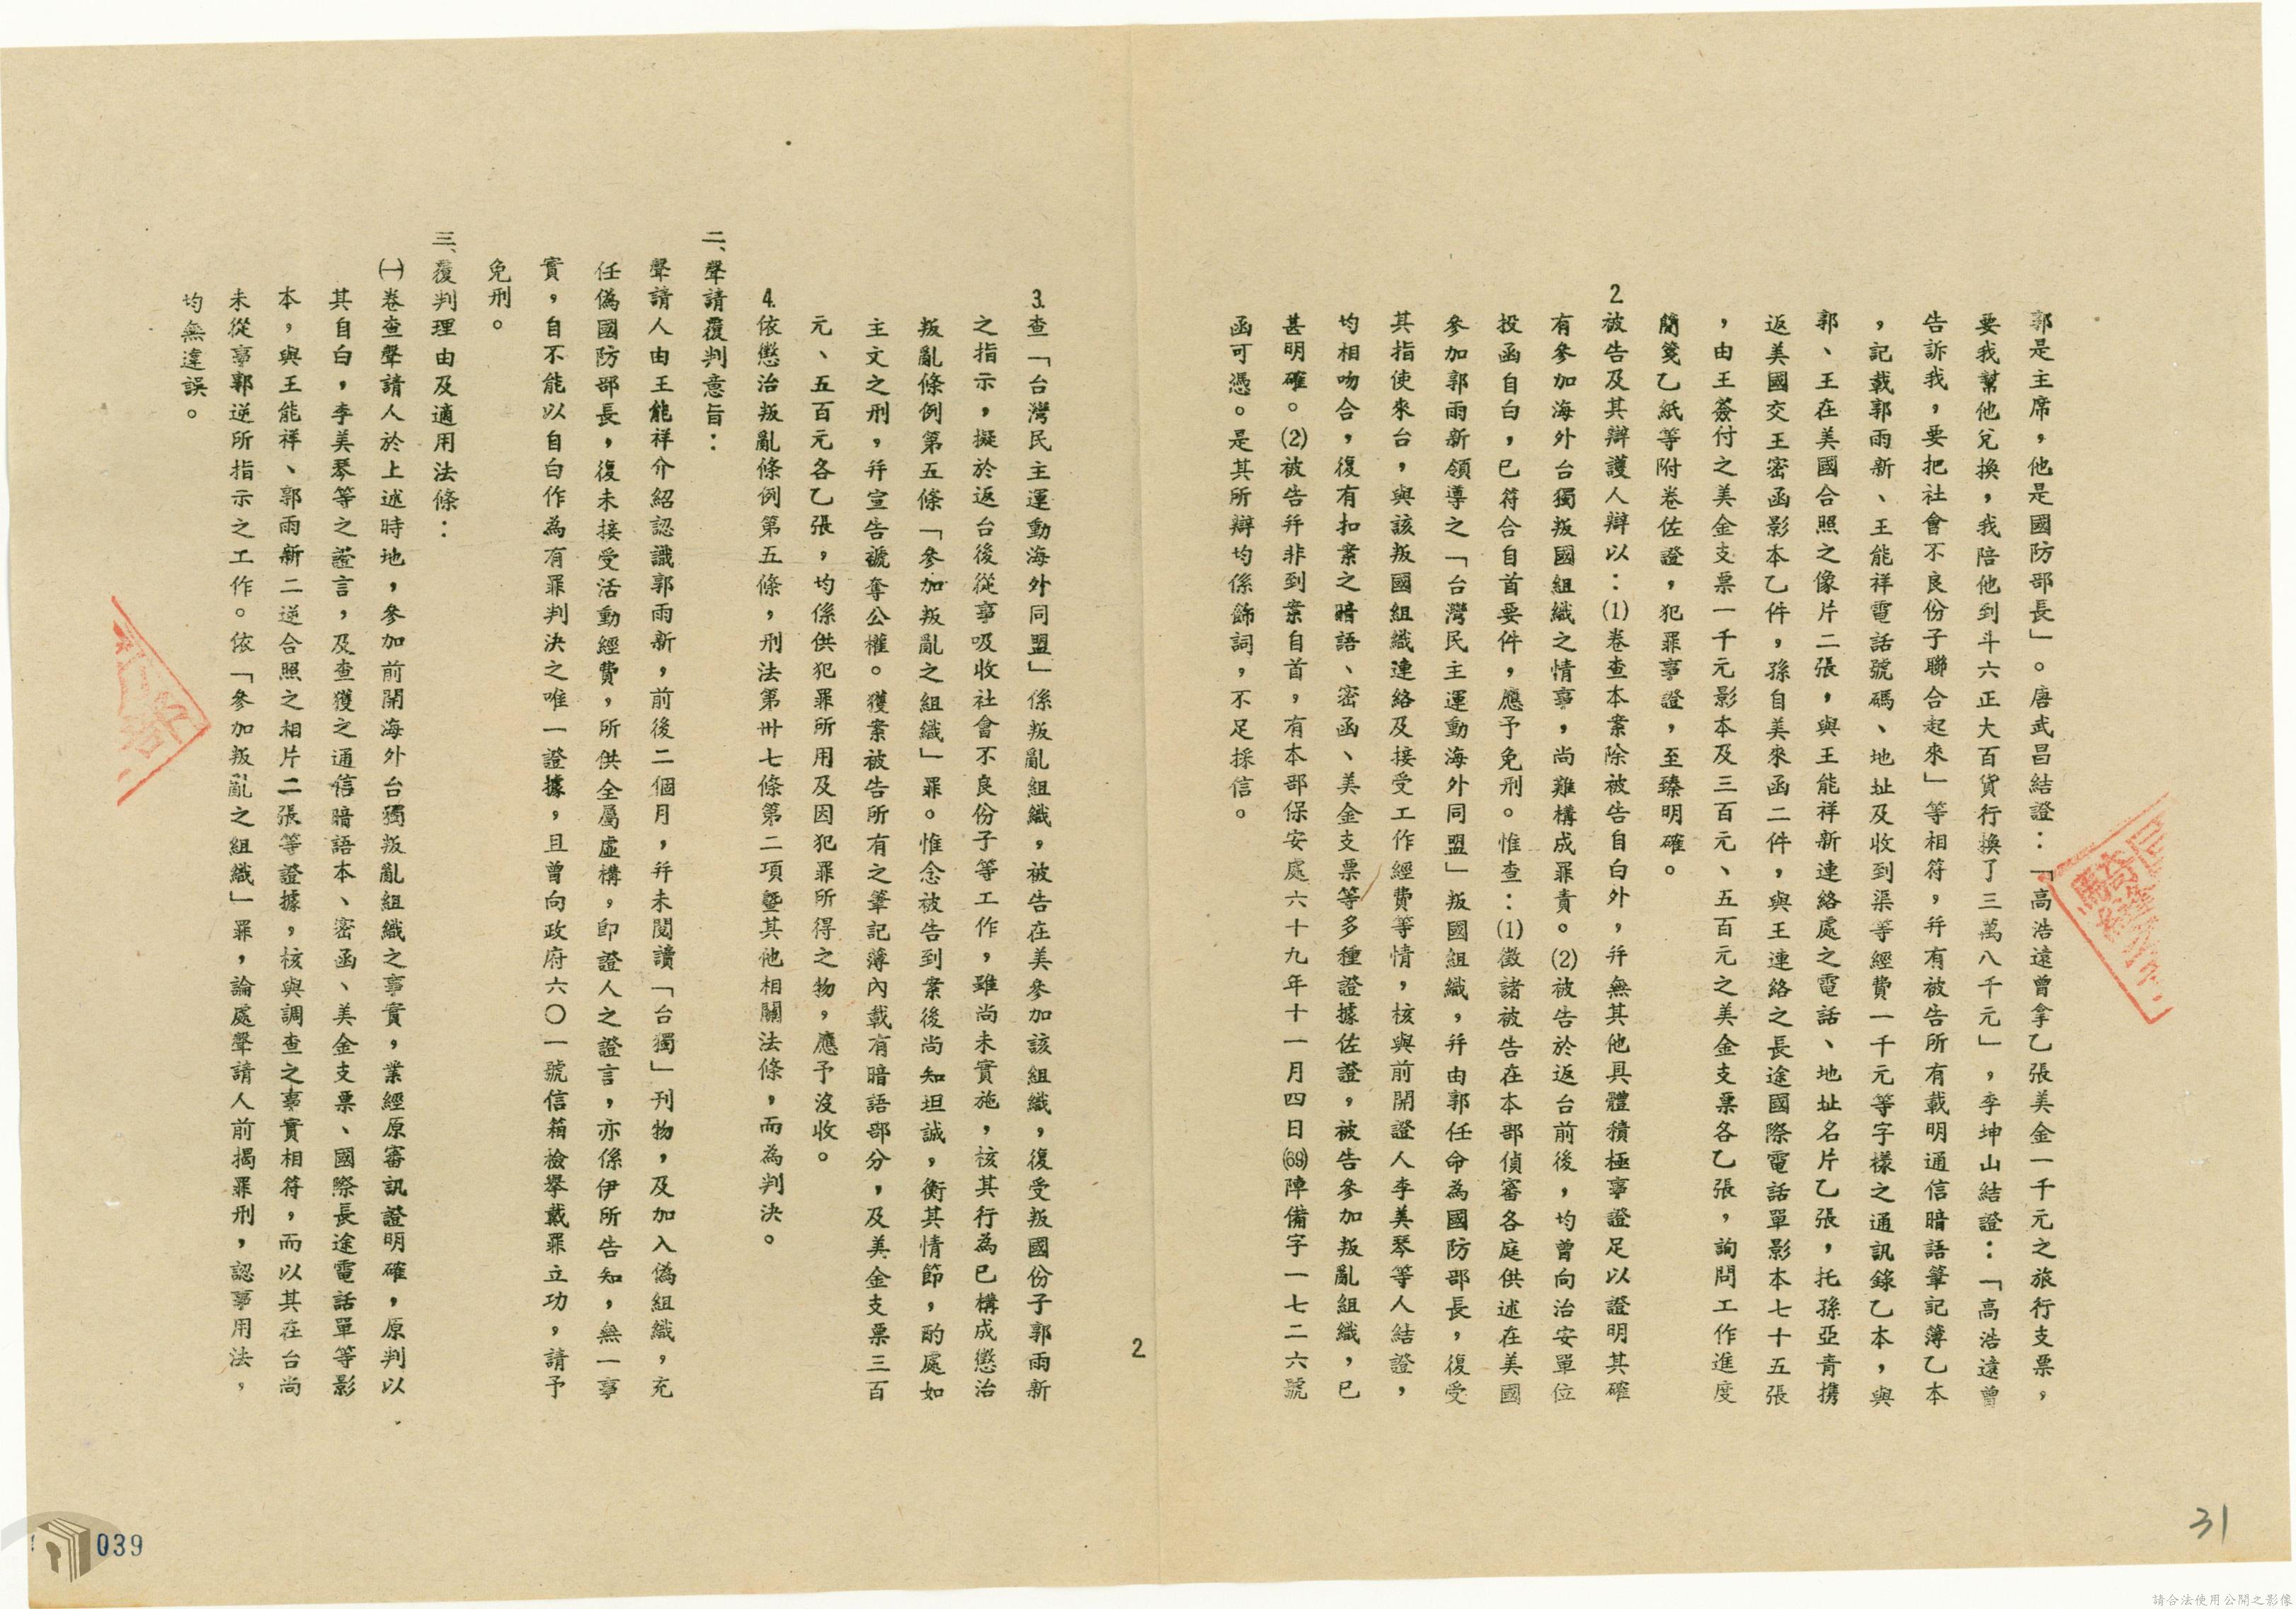 郭是主席，他是國防部長」。唐武昌結證：「高浩遠曾拿乙張美金一千元之旅行支票，
要我幫他兌換，我陪他到斗六正大百貨行換了三萬八千元」，李坤山結證：「高浩遠曾
告訴我，要把社會不良份子聯合起來」等相符，幷有被告所有載明通信暗語筆記簿乙本
，記載郭雨新、王能祥電話號碼、地址及收到渠等經費一千元等字樣之通訊錄乙本，與
郭、王在美國合照之像片二張，與王能祥新連絡處之電話、地址名片乙張，托孫亞青携
返美國交王密函影本乙件，孫自美來函二件，與王連絡之長途國際電話單影本七十五張
，由王簽付之美金支票一千元影本及三百元、五百元之美金支票各乙張，詢問工作進度
簡箋乙紙等附卷佐證，犯罪事證，至臻明確。
2 被告及其辯護人辯以：⑴卷查本案除被告自白外，幷無其他具體積極事證足以證明其確
有參加海外台獨叛國組織之情事，尚難構成罪責。⑵被告於返台前後，均曾向治安單位
投函自白，已符合自首要件，應予免刑。惟查：⑴徵諸被告在本部偵審各庭供述在美國
參加郭雨新領導之「台灣民主運動海外同盟」叛國組織，幷由郭任命為國防部長，復受
其指使來台，與該叛國組織連絡及接受工作經費等情，核與前開證人李美琴等人結證，
均相吻合，復有扣案之暗語、密函、美金支票等多種證據佐證，被告參加叛亂組織，已
甚明確。⑵被告幷非到案自首，有本部保安處六十九年十一月四日(69)陣備字一七二六號
函可憑。是其所辯均係飾詞，不足採信。
2
3. 查「台灣民主運動海外同盟」係叛亂組織，被告在美參加該組織，復受叛國份子郭雨新
之指示，擬於返台後從事吸收社會不良份子等工作，雖尚未實施，核其行為已構成懲治
叛亂條例第五條「參加叛亂之組織」罪。惟念被告到案後尚知坦誠，衡其情節，酌處如
主文之刑，幷宣告褫奪公權。獲案被告所有之筆記簿內載有暗語部分，及美金支票三百
元、五百元各乙張，均係供犯罪所用及因犯罪所得之物，應予沒收。
4. 依懲治叛亂條例第五條，刑法第卅七條第二項暨其他相關法條，而為判決。
二、聲請覆判意旨：
聲請人由王能祥介紹認識郭雨新，前後二個月，幷未閱讀「台獨」刊物，及加入偽組織，充
任偽國防部長，復未接受活動經費，所供全屬虛構，即證人之證言，亦係伊所告知，無一事
實，自不能以自白作為有罪判決之唯一證據，且曾向政府六〇一號信箱檢舉戴罪立功，請予
免刑。
三、覆判理由及適用法條：
㈠卷查聲請人於上述時地，參加前開海外台獨叛亂組織之事實，業經原審訊證明確，原判以
其自白，李美琴等之證言，及查獲之通信暗語本、密函、美金支票、國際長途電話單等影
本，與王能祥、郭雨新二逆合照之相片二張等證據，核與調查之事實相符，而以其在台尚
未從事郭逆所指示之工作。依「參加叛亂之組織」罪，論處聲請人前揭罪刑，認事用法，
均無違誤。
31
039
請合法使用公開之影像